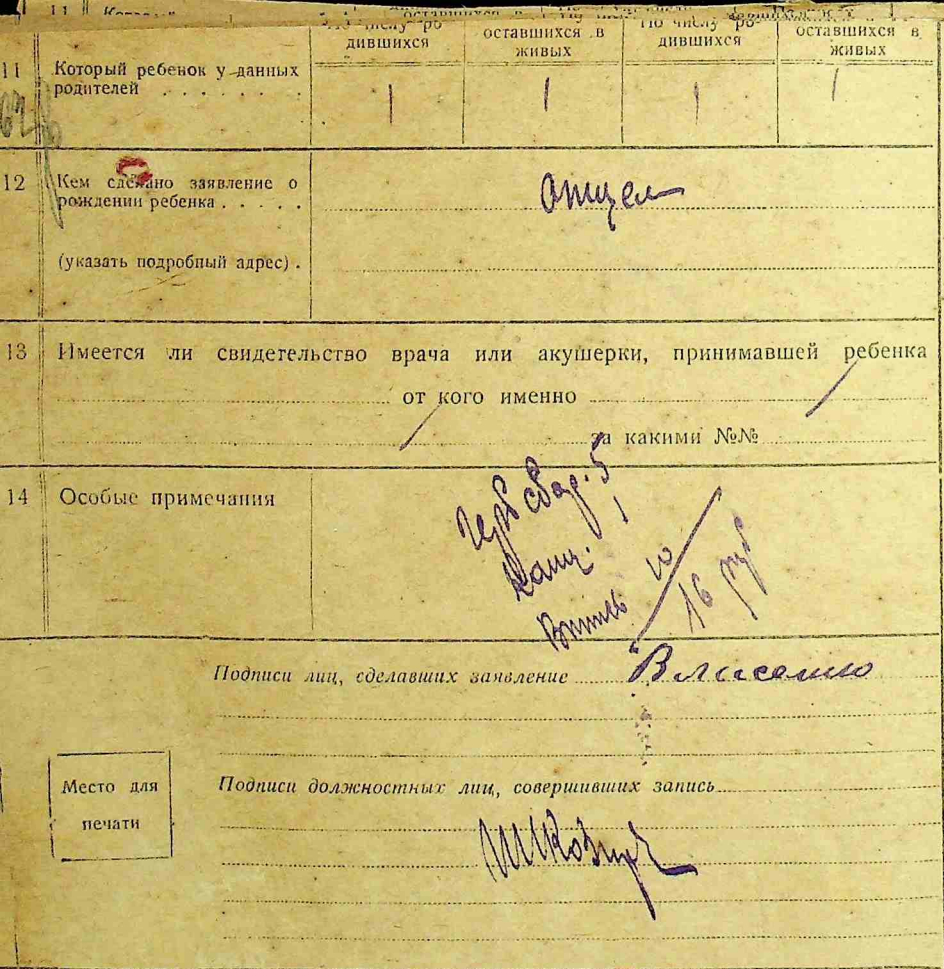 дившихся
оставшихся в живых
По числу ро-
дившихся
оставшихся в живых
11 Который ребенок у данных
родителей . . . . . . .
1 1 1 1
12 Кем сделано заявление о
рождении ребенка . . . . .
отцем
(указать подробный адрес) .
13 Имеется ли свидетельство врача или акушерки, принимавшей ребенка
от кого именно
за какими №№
14 Особые примечания
5
Канц. 1
10
16 руб
Подписи лиц, сделавших заявление
Место для
печати
Подписи должностных лиц, совершивших запись